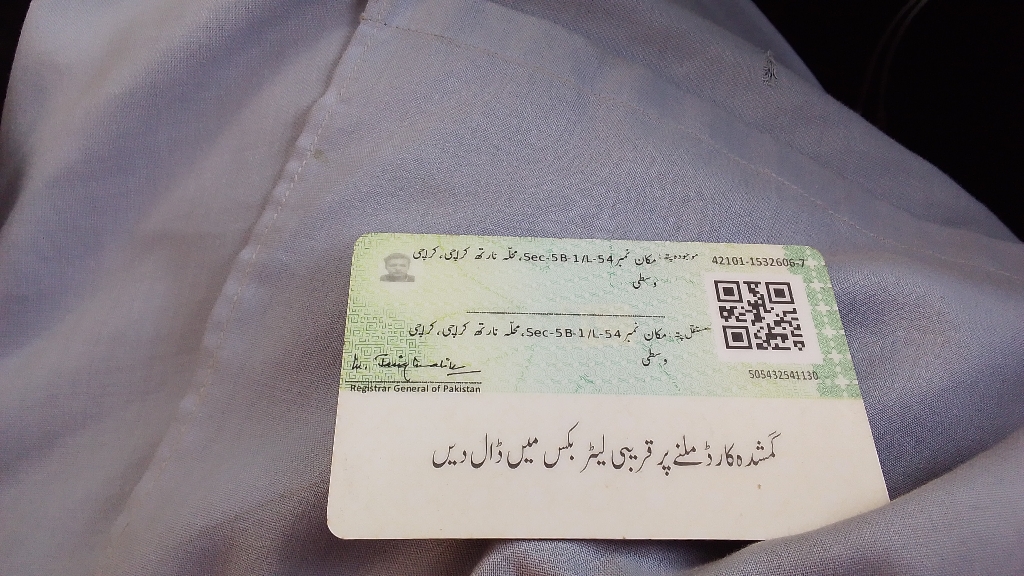 موجودہ پتہ: مکان نمبر Sec-5B-1/L-54، محلہ نارتھ کراچی، کراچی
وسطی
42101-1532606-7
مستقل پتہ: مکان نمبر Sec-5B-1/L-54، محلہ نارتھ کراچی، کراچی
وسطی
505432541130
Registrar General of Pakistan
گمشدہ کارڈ ملنے پر قریبی لیٹر بکس میں ڈال دیں